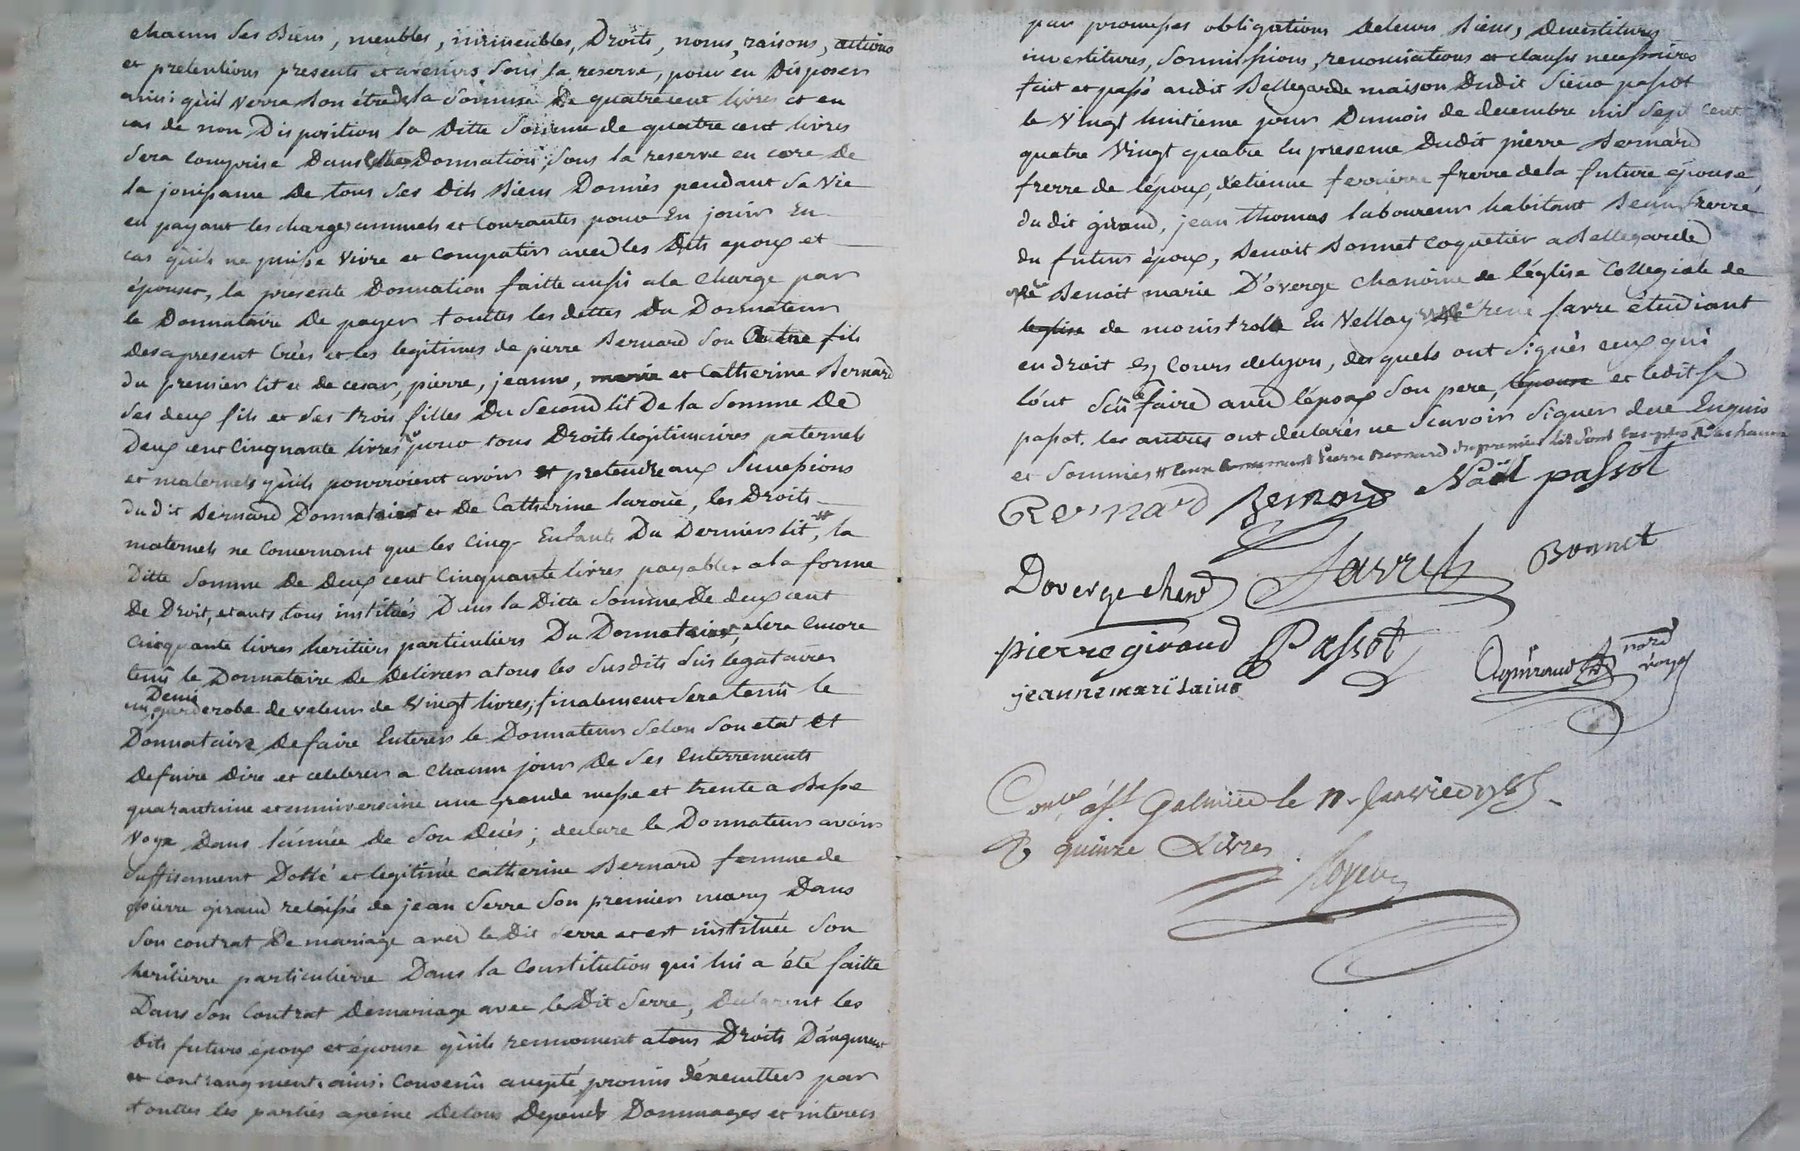 chacun ses Biens, meubles, immeubles, Droits, noms, raisons, actions
et pretentions presents et avenirs sous la reserve, pour en Disposer
ainsi qu'il verra Bon être de la Somme De quatre cent livres et en
cas de non Disposition la Ditte Somme de quatre cent livres
Sera comprise Dans Donnation; Sous la reserve en core De
la jouissance De tous ses Dits Biens Donnés pendant Sa Vie
en payant les charges annuels et Courantes pour En jouir En
cas qu'ils ne puisse Vivre et Compatir avec les Dits epoux et
épouse, la presente Donnation faitte aussi a la Charge par
le Donnataire De payer touttes les dettes Du Donnateur
des a present Crées et les legitimes de pierre Bernard Son Autre fils
du premier lit et de cesar, pierre, jeanne, marie et Catherine Bernard
Ses deux fils et Ses trois filles Du Second lit De la Somme De
Deux cent Cinquante livres pour tous Droits legitimaires paternels
et maternels qu'ils pourroient avoir et pretendre aux Successions
du dit Bernard Donnateur et De Catherine laroüe, les Droits
maternels ne Concernant que les Cinq Enfants Du Dernier lit, la
Ditte Somme De Deux cent Cinquante livres payables a la forme
De Droit, etants tous institués Dans la Ditte Somme De deux cent
Cinquante livres heritiers particuliers Du Donnateur, Sera Encore
tenû le Donnataire De Delivrer a tous les Susdits Six legataires
Denis
un garderobe de valeur de Vingt livres; finalement Sera tenû le
Donnataire De faire Enterrer le Donnateur Selon Son etat et
De faire Dire et celebrer a Chacun jours De Ses Enterrements
quarantaine et anniversaire une grande messe et trente a Basse
Voye Dans l'année de Son Decés; declare le Donnateur avoir
suffisament Dotté et legitimé catherine Bernard femme de
pierre giraud relaissé de jean Serre Son premier mary Dans
Son contrat De mariage avec le Dit Serre et est instituée Son
heritierre particulierre Dans la Constitution qui lui a été faitte
Dans Son Contrat De mariage avec le Dit Serre, Declarent les
Dits futurs époux et épouse qu'ils renoncent a tous Droits D'augment
et contraugment. ainsi Convenû accepté promis D'executter par
touttes les parties a peine De tous Depends Dommages et interets
par promesses obligations De leurs Biens, Devestitures
investitures, Soumissions, renonciations et clauses necessaires
fait et passé au dit Bellegarde maison Du dit Sieur passot
le Vingt huitieme jour Du mois de decembre mil Sept cent
quatre Vingt quatre En presence Du dit pierre Bernard
frerre de l'époux, d'etienne ferrierre frerre de la future épouse,
du dit giraud, jean thomas laboureur habitant Beau frerre
du futur époux, Benoit Bonnet Coquetier a Bellegarde
Benoit marie D'överge chanoine de l'église Collegiale de
l'eglise de monistrol En Vellay rene favre étudiant
en droit es Cours de Lyon, des quels ont Signés ceux qui
l'ont Sçû faire avec l'époux Son pere, lépouse et le dit Sr
passot. les autres ont declarés ne Scavoir Signer de ce Enquis
et Sommés
Bernard Bernard Näel passot
Doverge chan Favre Bonnet
pierre giraud Passot
jeanne marï
Conlé à St Galmier le Janvier 1785
R quinze Livres